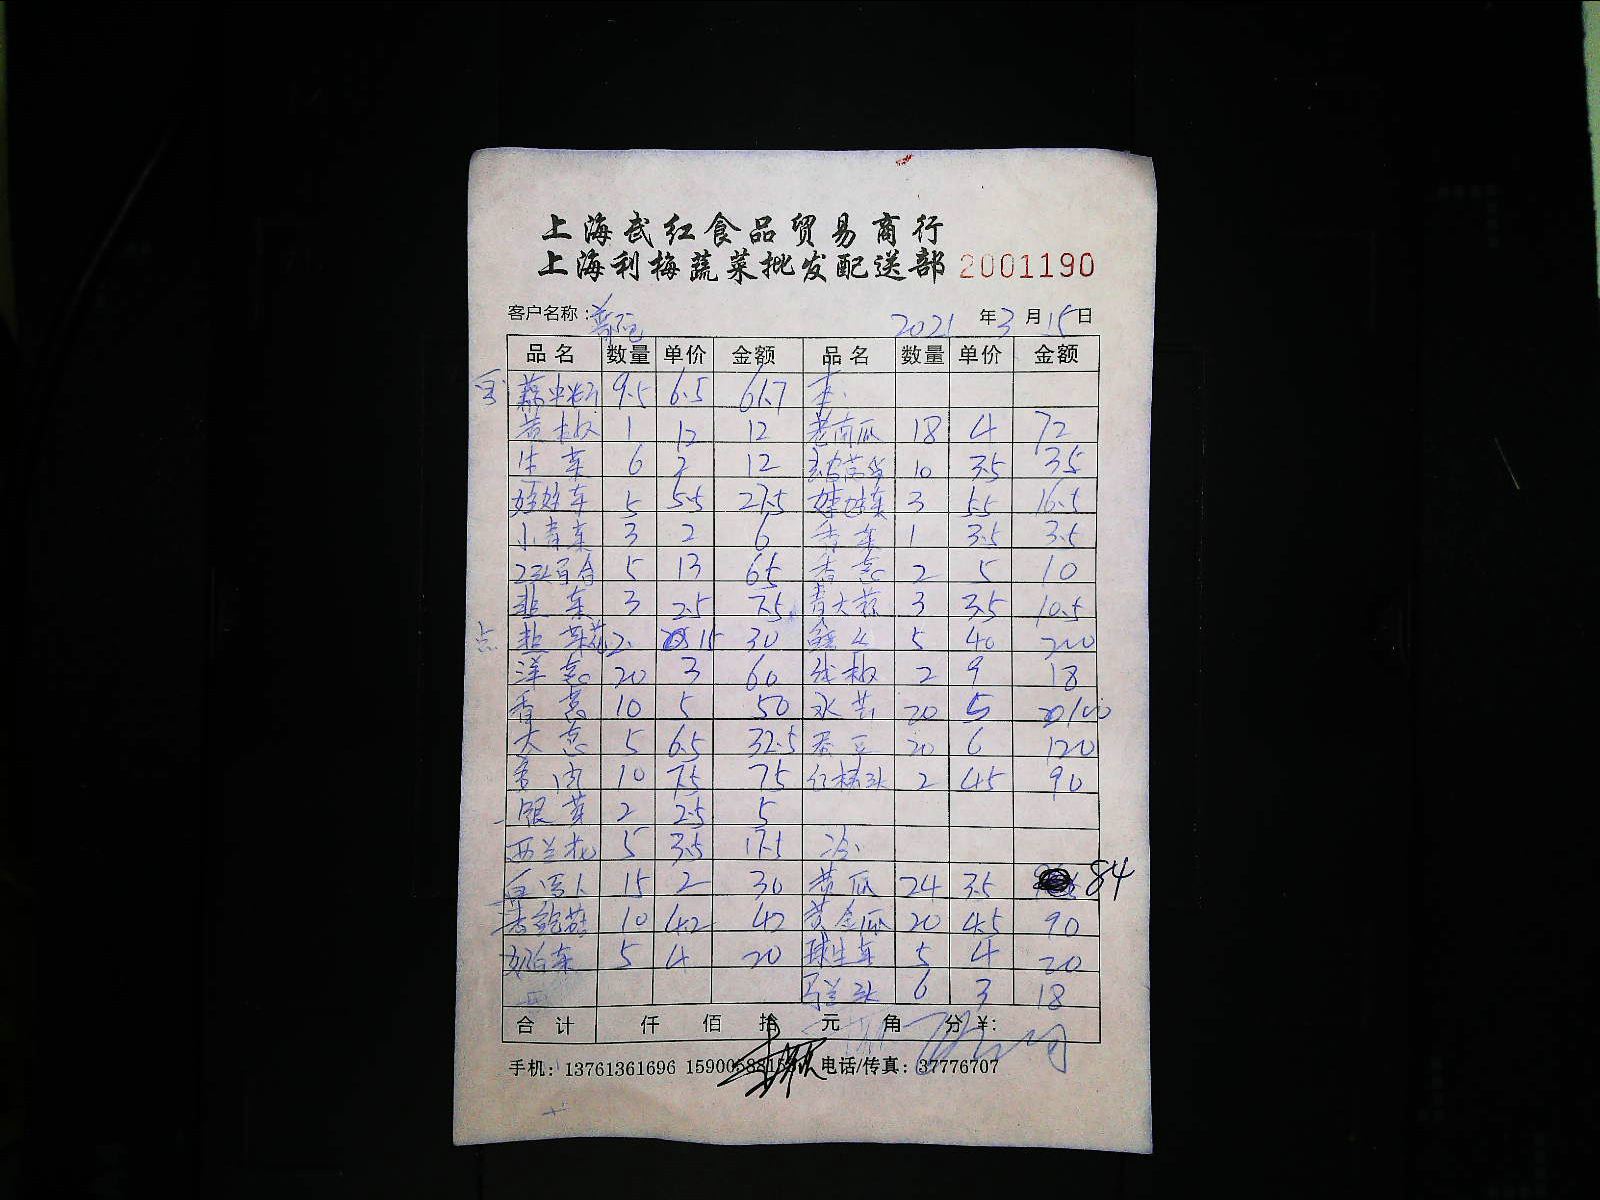 上海武红食品贸易商行
上海利梅蔬菜批发配送部 2001190
客户名称: 2021 年 3 月 15 日
品名 数量 单价 金额 品名 数量 单价 金额
9.5 6.5 61.7
黄椒 1 12 12 老南瓜 18 4 72
生菜 6 2 12 10 3.5 35
娃娃菜 5 5.5 27.5 娃娃菜 3 5.5 16.5
小青菜 3 2 6 香菜 1 3.5 3.5
百合 5 13 65 香葱 2 5 10
韭菜 3 2.5 7.5 青大蒜 3 3.5 10.5
点 韭菜花 2 15 30 5 40 200
洋葱 20 3 60 线椒 2 9 18
香葱 10 5 50 20 5 100
大葱 5 6.5 32.5 20 6 120
10 7.5 75 2 45 90
银芽 2 2.5 5
西兰花 5 3.5 17.5 冷
15 2 30 黄瓜 24 3.5 84
杏鲍菇 10 4.2 42 黄金瓜 20 4.5 90
5 4 20 球生菜 5 4 20
马兰头 6 3 18
合计 仟 佰 拾 元 角 分 ¥:
手机: 13761361696 电话/传真: 37776707